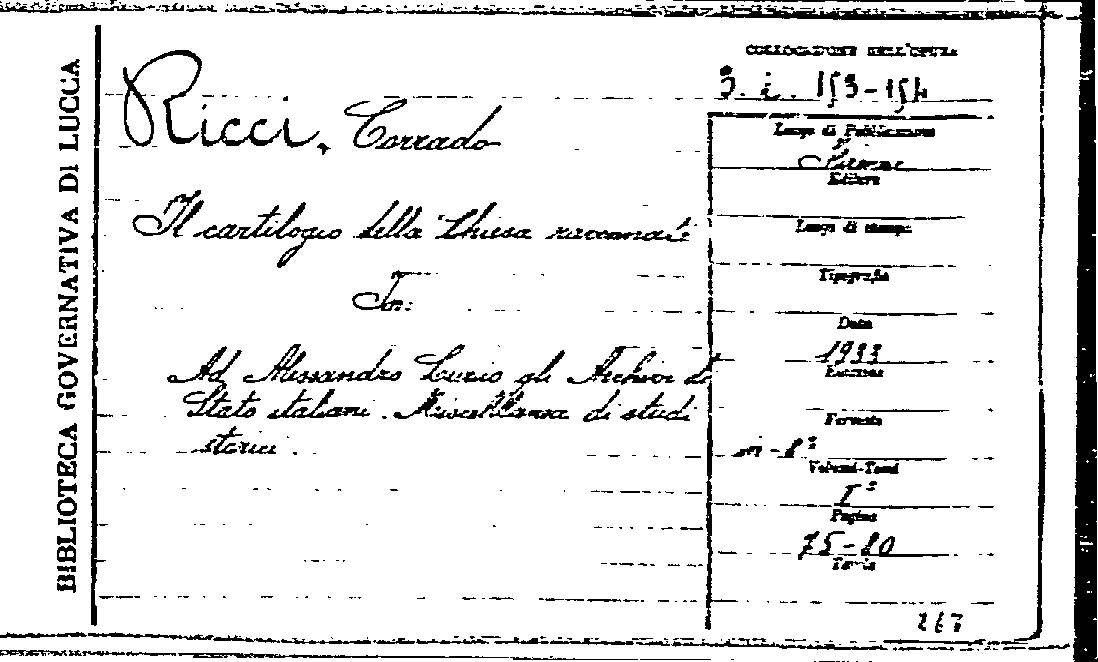 BIBLIOTECA GOVERNATIVA DI LUCCA
Ricci, Corrado
Il cartilogio della Chiesa
In:
Ad Alessandro Luzio gli Archivi di
Stato italiani. Miscellanea di studi
storici.
COLLOCAZIONE DELL'OPERA
3. i. 153-154
Luogo di Pubblicazione
Firenze
Editore
Luogo di stampa
Tipografia
Data
1933
Edizione
Formato
in-8°
Volumi-Tomi
I°
Pagine
75-80
Tavole
267